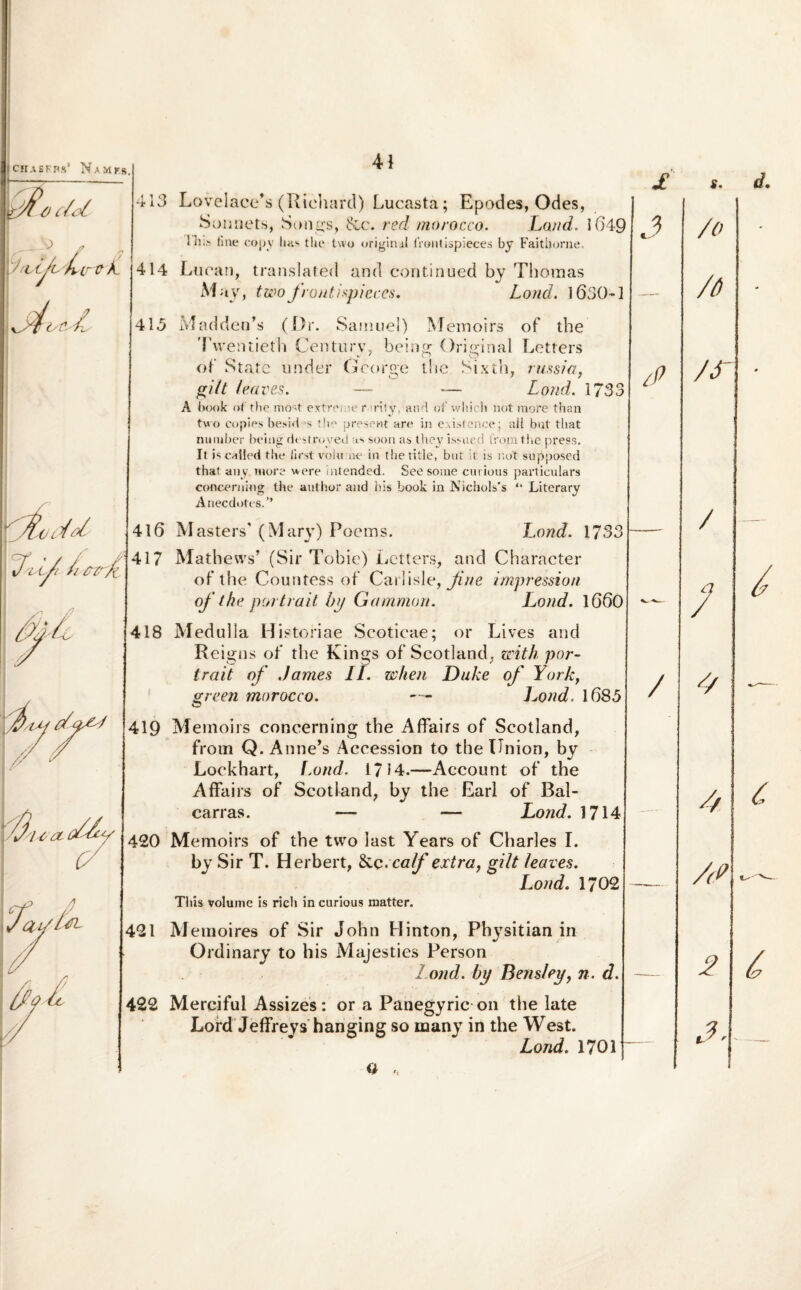 41
CHASERS' NAMES.
£ s. d.
Rodd
413 Lovelace's (Richard) Lucasta; Epodes, Odes,
Sonnets, Songs, &c. red morocco. Lond. 1649
3 10 -
This fine copy has the two original frontispieces by Faithorne.
414 Lucan, translated and continued by Thomas
May, two frontispieces. Lond. 1630-1
— 10 -
415 Madden's (Dr. Samuel) Memoirs of the
Twentieth Century, being Original Letters
of State under George the Sixth, russia,
gilt leaves. — — Lond. 1733
15 -
A book of the most extreme rarity, and of which not more than
two copies besides the present are in existence; all but that
number being destroyed as soon as they issued from the press.
It is called the first volume in the title, but it is not supposed
that any more were intended. See some curious particulars
concerning the author and his book in Nichols's “ Literary
Anecdotes.”
Rodd
416 Masters' (Mary) Poems. Lond. 1733
— /
417 Mathews' (Sir Tobie) Letters, and Character
of the Countess of Carlisle, fine impression
of the portrait by Gammon. Lond. 1660
— 7 6
418 Medulla Historiae Scoticae; or Lives and
Reigns of the Kings of Scotland, with por-
trait of James II. when Duke of York,
green morocco. — Lond. 1685
/ 4 —
419 Memoirs concerning the Affairs of Scotland,
from Q. Anne's Accession to the Union, by
Lockhart, Lond. 1714.—Account of the
Affairs of Scotland, by the Earl of Bal-
carras. — — Lond. 1714
4 6
420 Memoirs of the two last Years of Charles I.
by Sir T. Herbert, &c. calf extra, gilt leaves.
Lond. 1702
— 10 —
This volume is rich in curious matter.
Taylor
421 Memoires of Sir John Hinton, Physitian in
Ordinary to his Majesties Person
Lond. by Bensley, n. d.
— 2 6
422 Merciful Assizes: or a Panegyric on the late
Lord Jeffreys hanging so many in the West.
Lond. 1701
— 3 —
G